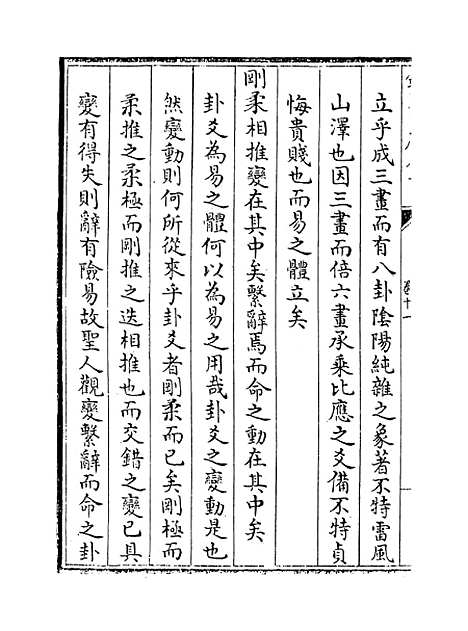 卷十一
立乎成三畫而有八卦陰陽純雜之象著不特雷風
山澤也因三畫而倍六畫承乘比應之爻備不特貞
悔貴賤也而易之體立矣
剛柔相推變在其中矣繫辭焉而命之動在其中矣
卦爻為易之體何以為易之用哉卦爻之變動是也
然變動則何所從來乎卦爻者剛柔而已矣剛極而
柔推之柔極而剛推之迭相推也而交錯之變已具
變有得失則辭有險易故聖人觀變繫辭而命之卦